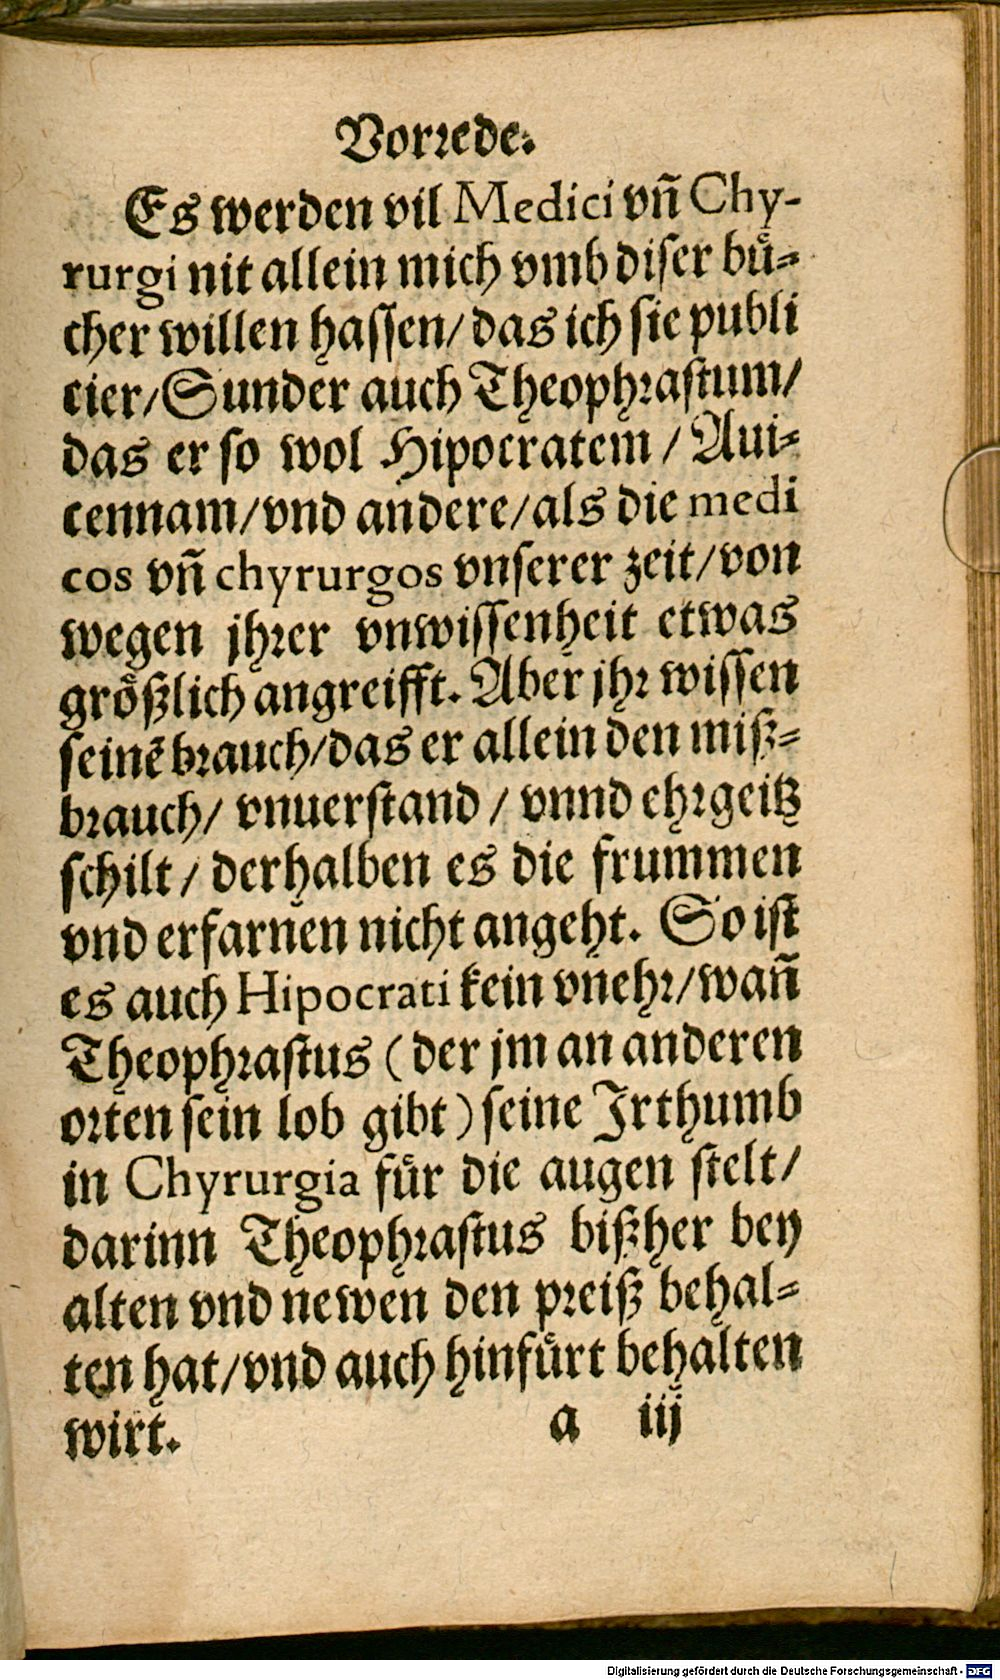 Vorrede.
Es werden vil Medici vñ Chy-
rurgi nit allein mich vmb diser buͤ-
cher willen hassen/ das ich sie publi
cier/ Sunder auch Theophrastum/
das er so wol Hipocratem / Aui-
cennam/ vnd andere/ als die medi
cos vñ chyrurgos vnserer zeit/ von
wegen jhrer vnwissenheit etwas
groͤßlich angreifft. Aber jhr wissen
seinē brauch/ das er allein den miß-
brauch/ vnuerstand / vnnd ehrgeitz
schilt / derhalben es die frummen
vnd erfarnen nicht angeht. So ist
es auch Hipocrati kein vnehr/ wañ
Theophrastus ( der jm an anderen
orten sein lob gibt ) seine Jrthumb
in Chyrurgia fuͤr die augen stelt/
darinn Theophrastus bißher bey
alten vnd newen den preiß behal-
ten hat/ vnd auch hinfuͤrt behalten
wirt. a iij
Digitalisierung gefördert durch die Deutsche Forschungsgemeinschaft - DFG